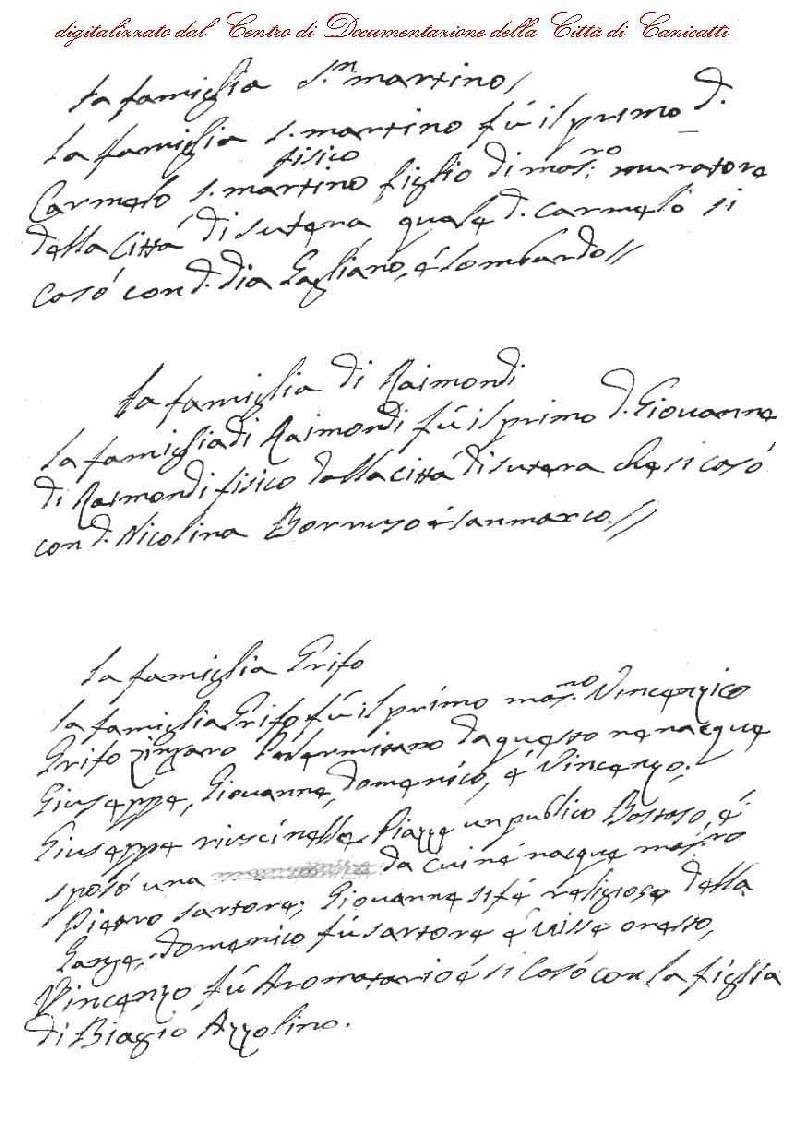 digitalizzato dal Centro di Documentazione della Città di Canicattì
La famiglia S.n martino/
La famiglia S. martino fú il primo D.
fisico
Carmelo S. martino figlio di mas.ro muratore
della Città di Sutera quale D. Carmelo si
Casó con D. Dia Gagliano, é Lombardo//
La famiglia di Raimondi
La famiglia di Raimondi fú il primo D. Giouanne
di Raimondi fisico dalla città di Sutera che si casó
con D. Nicolina Borruso é Sanmarco//
La famiglia Grifo
La famiglia Grifo fú il primo mas.ro Vincenzico
Grifo zingaro Palermitano da questo ne nacque
Giuseppe, Giouanne, Domenico, é Vincenzo;
Giuseppe riusci nelle Piazze un publico Bastaso, é
sposó una da cui né nacque mas.ro
Pietro sartore; Giouanne si fé religioso della
domenico fú sartore é uisse onesto,
Vincenzo fú Aromatario é si Casó con la figlia
di Biagio Azzolino.